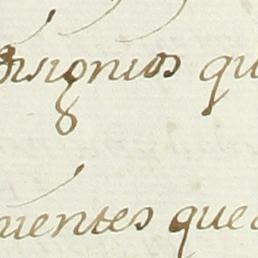 signios qu
uentes que